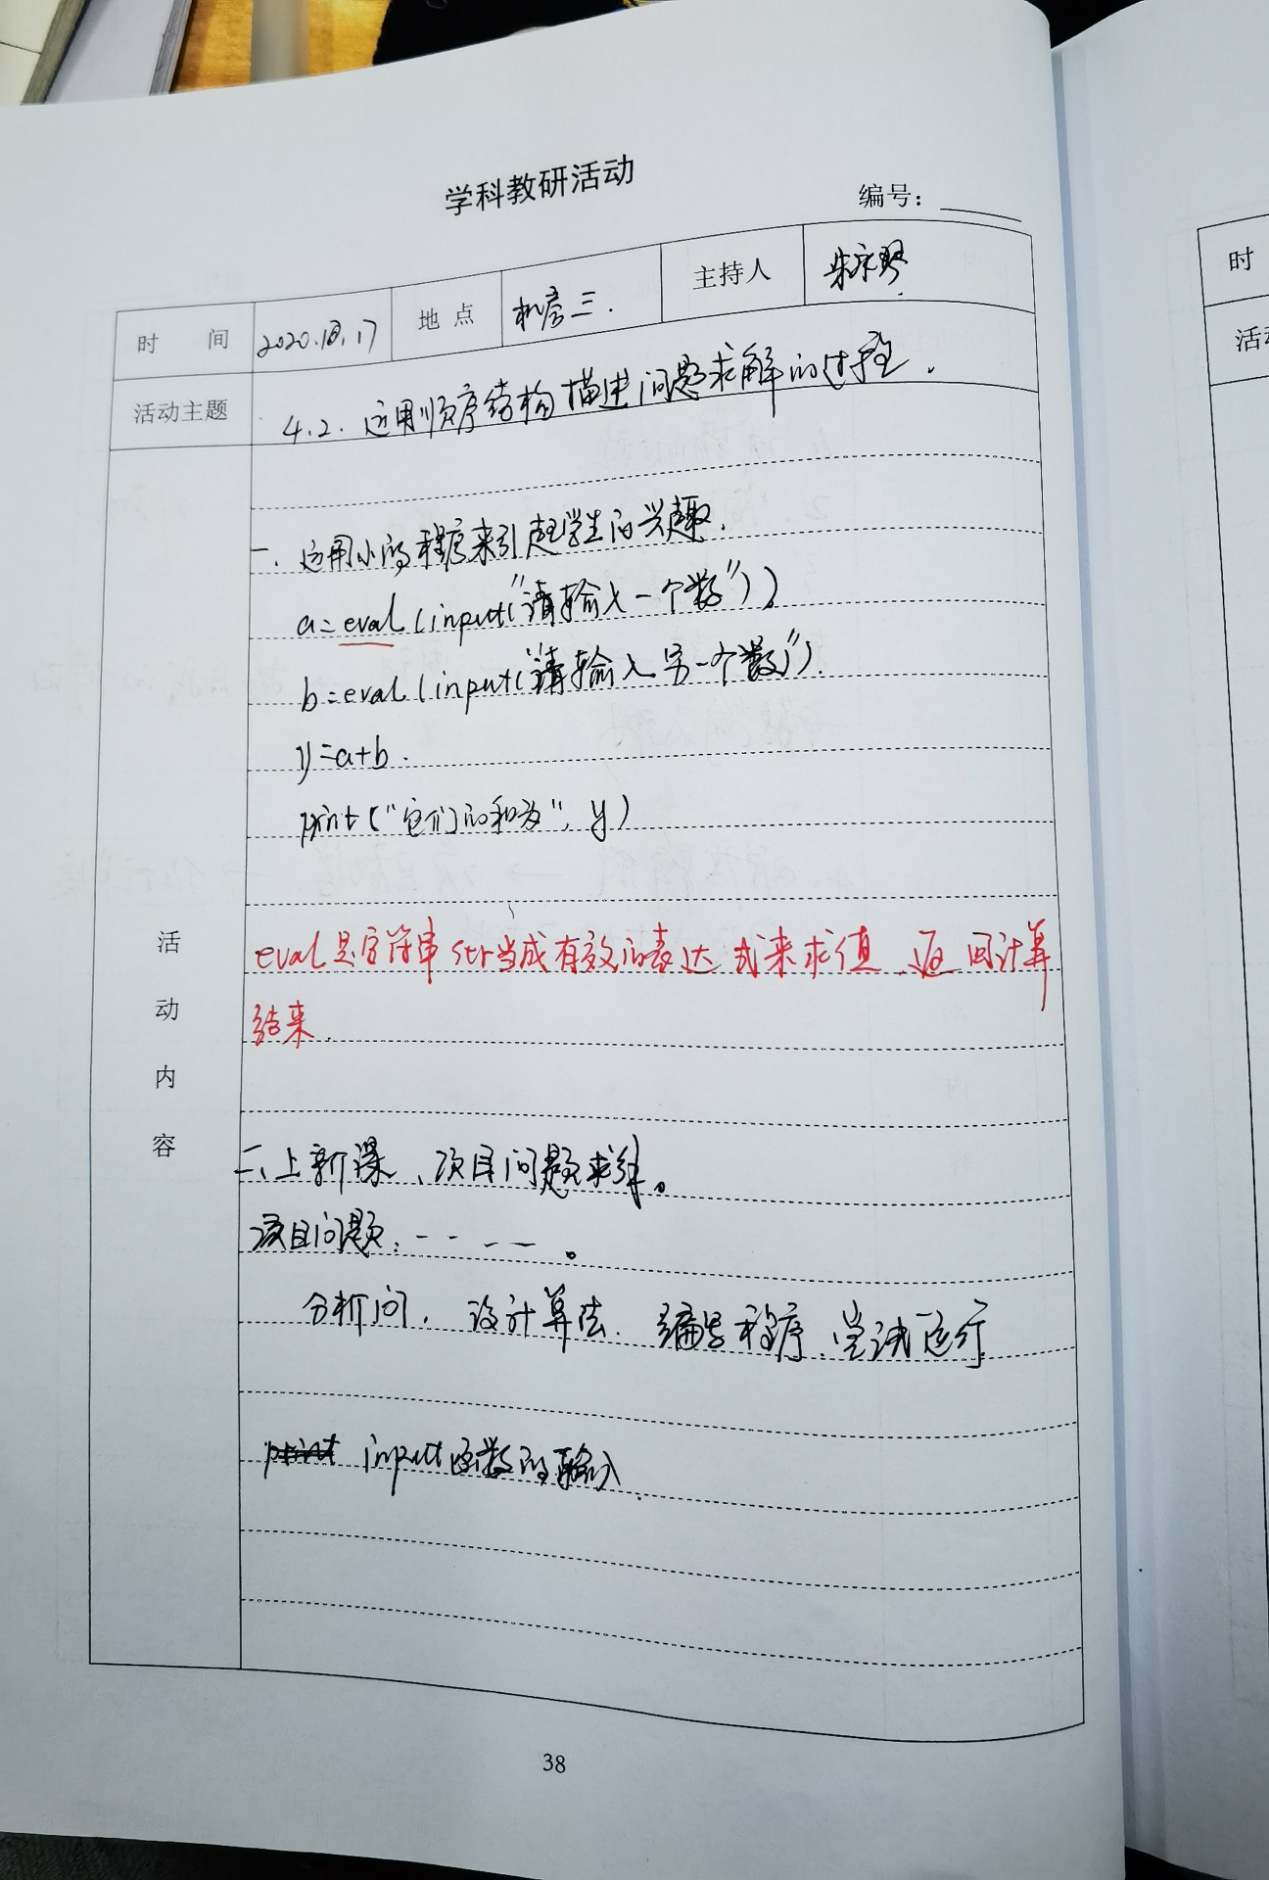 学科教研活动
编号：
时 间 2020.10.17 地 点 机房三. 主持人
活动主题 4.2. 运用顺序结构描述问题求解的过程.
活动内容
一. 运用小的程序来引起学生的兴趣.
a=eval(input("请输入一个数"))
b=eval(input("请输入另一个数")).
y=a+b.
print("它们的和为", y)
eval是字符串str当成有效的表达式来求值、返回计算
结果.
二、上新课、项目问题求解。
项目问题: - - - - 。
分析问. 设计算法. 编写程序、尝试运行
print input函数的输入
38
时
活